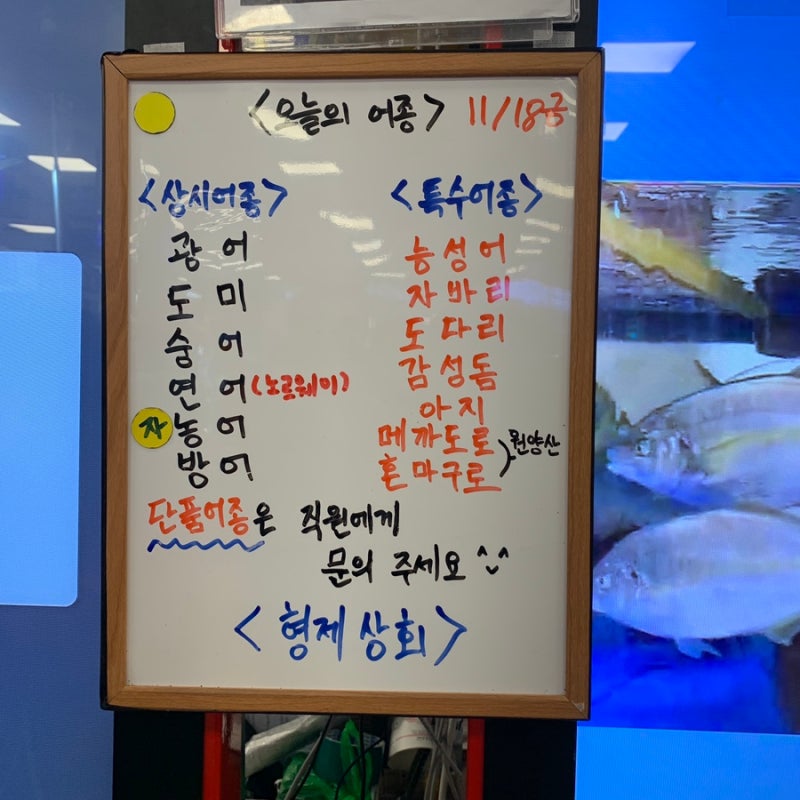 <오늘의 어종> 11/18금
<상시어종>
광어
도미
숭어
연어(노르웨이)
자 농어
방어
<특수어종>
능성어
자바리
도다리
감성돔
아지
메까도로
혼마구로
원양산
단품어종은 직원에게
문의 주세요 ^^
<형제상회>